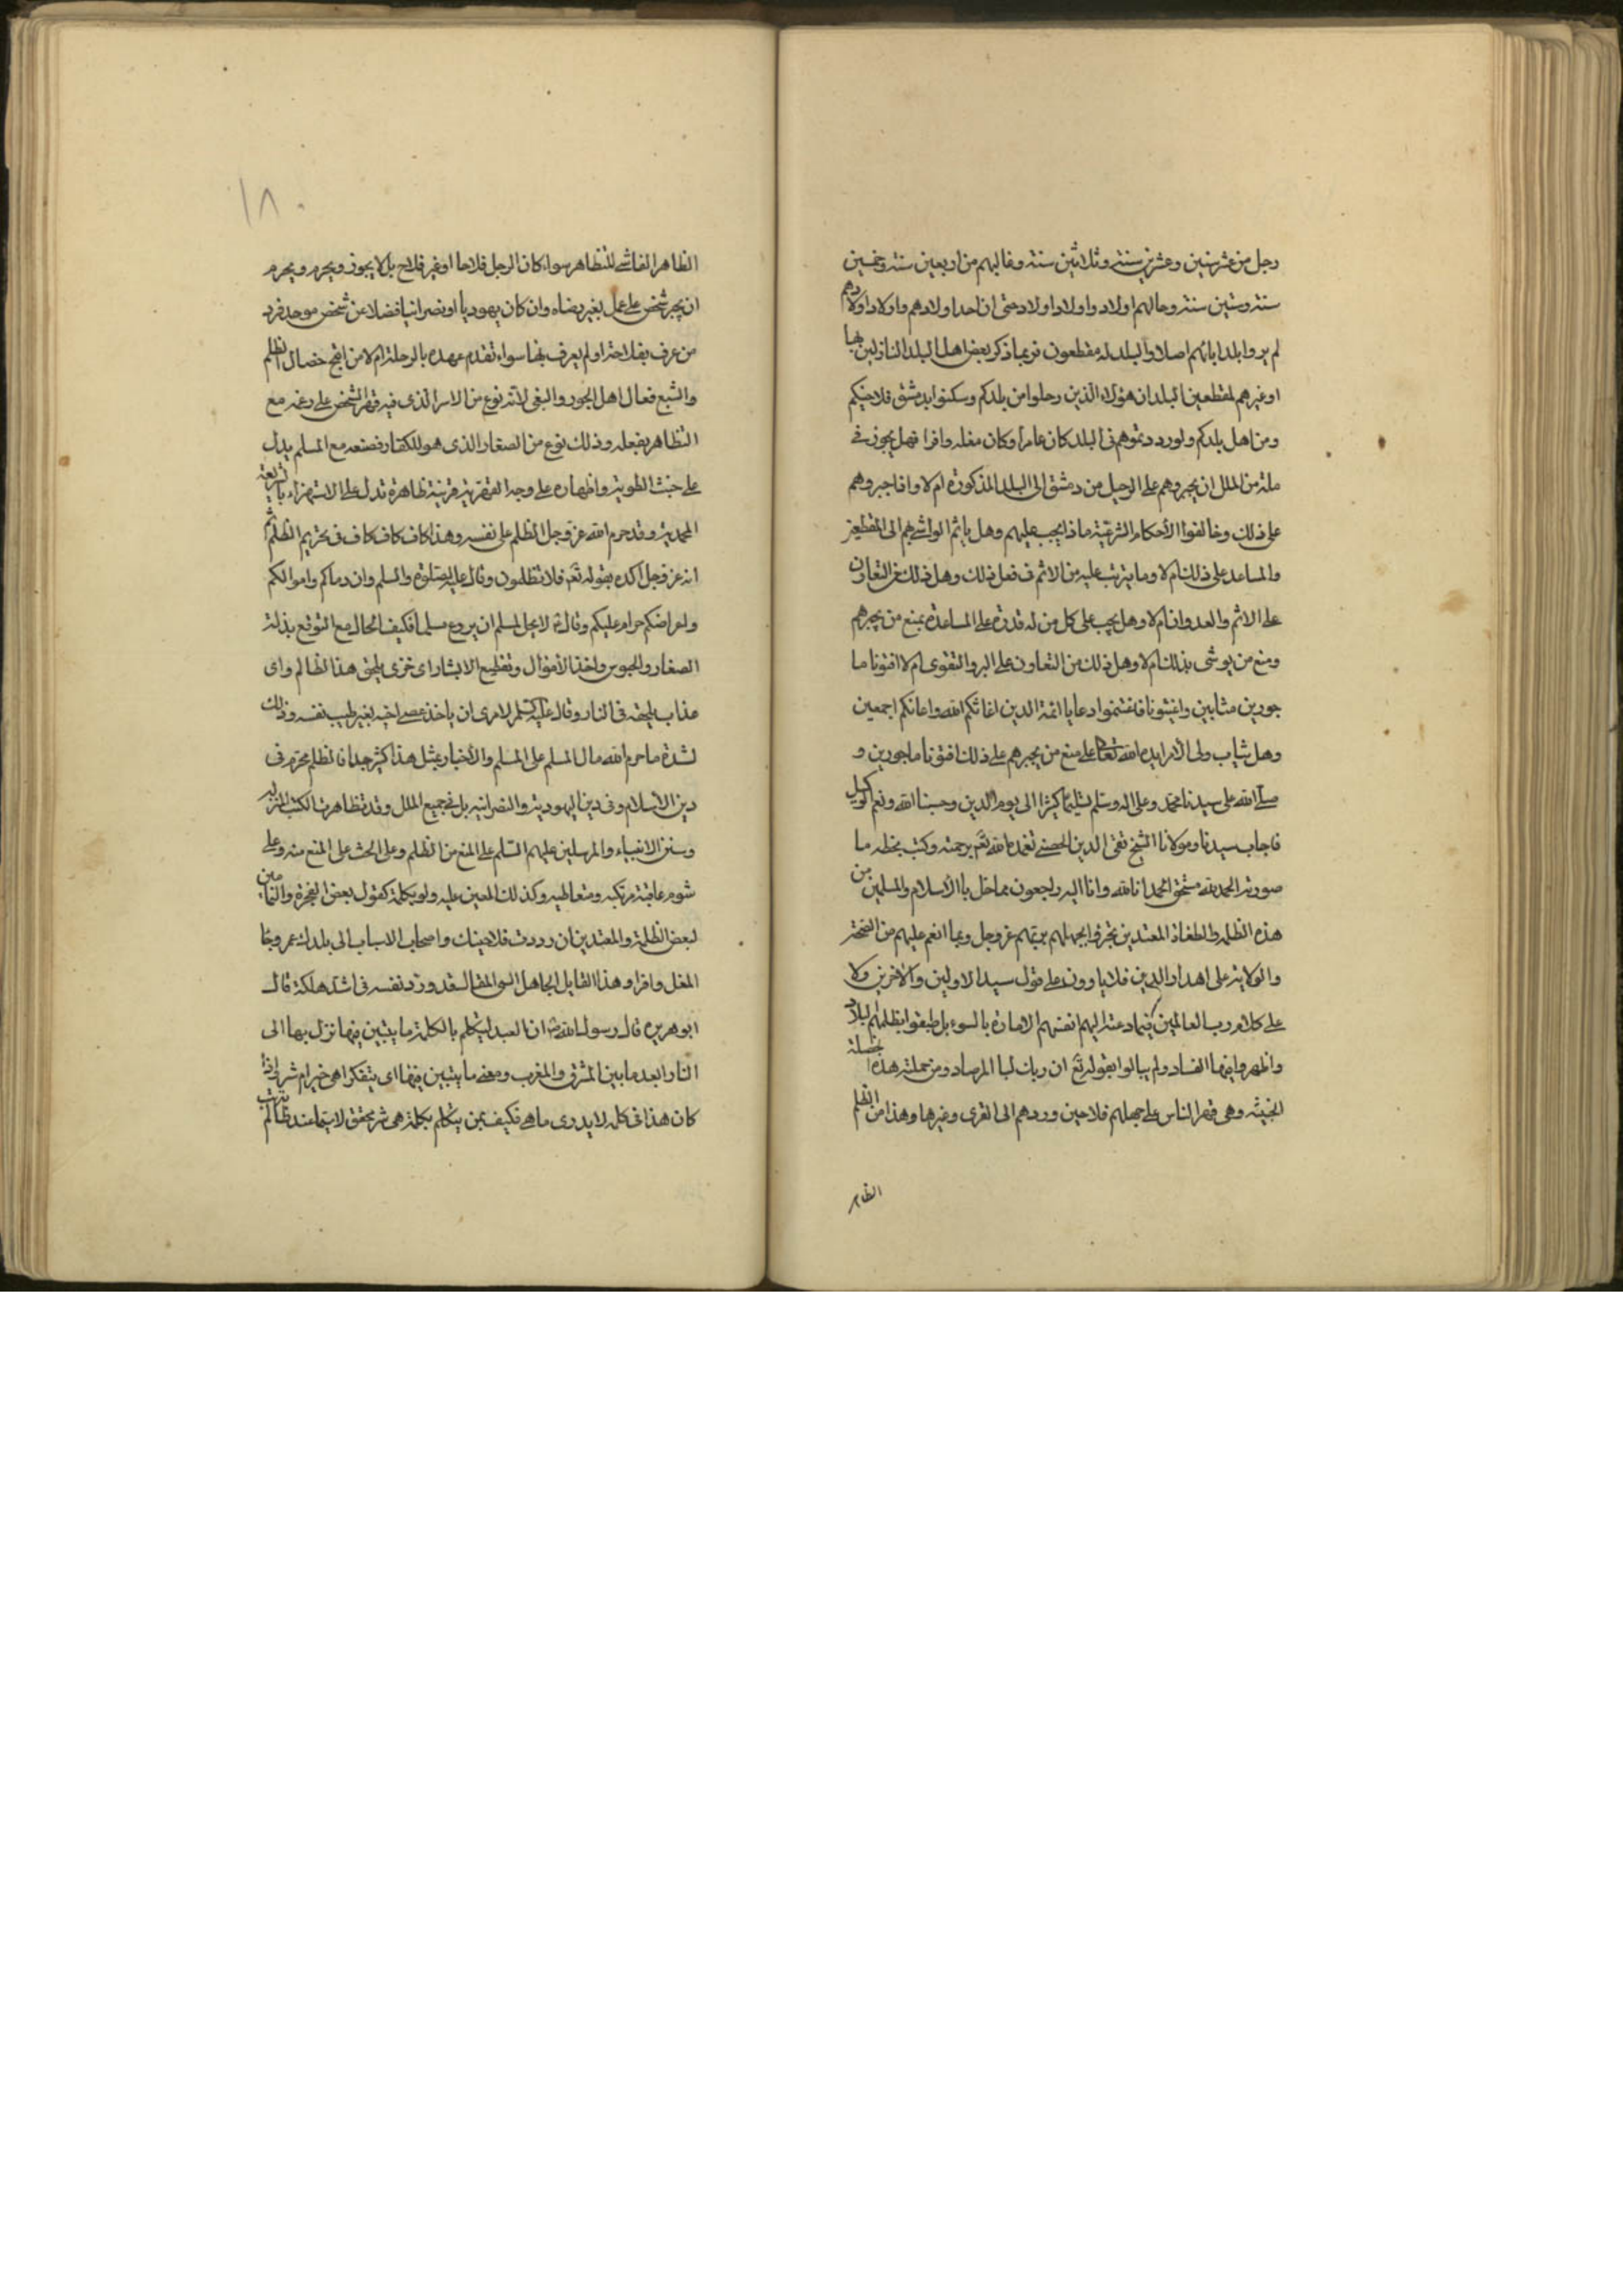 رجل من عشر سنين وعشرين سنة وثلاثين سنة وغالبهم من اربعين سنة وخمسين
سنة وستين سنة وحالهم اولاد واولاد اولاد حتى ان احدا ولادهم واولاد اولادهم
لم يروا بلد ابائهم اصلا والبلد له مقطعون فربما ذكر بعض اهل البلد النازلين بها
او غيرهم لمقطعين البلد ان هؤلاء الذين رحلوا من بلدكم وسكنوا بدمشق فلاحينكم
ومن اهل بلدكم ولو رددتموهم فى البلد كان عامرا وكان مغله وافرا فهل يجوز فى
ملة من الملل ان يجبروهم على الرحيل من دمشق الى البلد المذكورة ام لا واذا جبروهم
على ذلك وخالفوا الأحكام الشرعية ماذا يجب عليهم وهل ياثم الواشى بهم الى المقطعين
والمساعد على ذلك ام لا وما يترتب عليه من الاثم فى فعل ذلك وهل ذلك من التعاون
على الاثم والعدوان ام لا وهل يجب على كل من له قدرة على المساعدة بمنع من يجبرهم
ومنع من يوشى بذلك ام لا وهل ذلك من التعاون على البر والتقوى ام لا افتونا ما
جورين مثابين واغيثونا فاغتنموا دعا يا ائمة الدين اغاثكم الله واعانكم اجمعين
وهل يثاب ولى الأمر ايده الله تعالى على منع من يجبرهم على ذلك افتونا ماجورين و
صلى الله على سيدنا محمد وعلى اله وسلم تسليما كثيرا الى يوم الدين وحسبنا الله ونعم الوكيل
فاجاب سيدنا ومولانا الشيخ تقى الدين الحصنى تغمده الله تع برحمته وكتب بخطه ما
صورته الحمد لله مستحق الحمد انا لله وانا اليه راجعون مما حل بالأسلام والمسلمين من
هذه الظلمة والطغاة المعتدين تجرؤا بجهلهم بربهم عز وجل وبما انعم عليهم من الصحة
والولاية على اهداو الدين فلا ياوون على قول سيد الاولين والأخرين ولا
على كلام رب العالمين فيما دعته اليهم انفسهم الامارة بالسوء بل طبقوا بظلمهم البلاد
واظهروا فيها الفساد ولم يبالوا بقوله تع ان ربك لبا المرصاد ومن جملة هذه الخصلة
الخبيثة وهى قهر الناس على جعلهم فلاحين وردهم الى القرى وغيرها وهذا من الظلم
الظاهر
١٨٠
الظاهر الفاشى للتظاهر سواء كان الرجل فلاحا او غير فلاح بل لا يجوز ويحرم ويحرم
ان يجبر شخص على عمل بغير رضاه وان كان يهوديا او نصرانيا فضلا عن شخص موحد فرد
من عرف بفلاحة او لم يعرف بها سواء تقدم عهده بالرحلة ام لا من اقبح خصال الظلم
واشبع فعال اهل الجور والبغى لانه نوع من الاسر الذى فيه قهر الشخص على رغمه مع
التظاهر بفعله وذلك نوع من الصغار الذى هو للكفار فصنعه مع المسلم يدل
على خبث الطوية واظهاره على وجه القهرية قرينة ظاهرة تدل على الاستهزاء بالشريعة
المحمدية وقد حرم الله عز وجل الظلم على نفسه وهذا كاف كاف كاف فى تحريم الظلم ثم
انه عز وجل اكده بقوله تع فلا تظلمون وقال عليه الصلوة والسلم وان دماكم واموالكم
واعراضكم حرام عليكم وقال لا يحل لمسلم ان يروع مسلما فكيف الحال مع التوقع بذلة
الصغار والحبوس واخذ الأموال وتقطيع الابشار اى خزى يلحق هذا الظالم واى
عذاب يلحقه فى النار وقال عليه السلم لامرى ان ياخذ عصى اخيه بغير طيب نفسه وذلك
لشدة ما حرم الله مال المسلم على المسلم والأخبار بمثل هذا كثير جدا فالظلم محرم فى
دين الأسلام وفى دين اليهودية والنصرانية بل فى جميع الملل وقد تظاهرت الكتب المنزلة
وسنن الانبياء والمرسلين عليهم السلم على المنع من الظلم وعلى الحث على المنع منه وعلى
شوم عاقبة مرتكبه ومتعاطيه وكذلك المعين عليه ولو بكلمة كقول بعض الفجرة والنمامين
لبعض الظلمة والمعتدين ان رددت فلاحينك واصحاب الاسباب الى بلدك عمر وجا
المغل وافرا وهذا القايل الجاهل السى المقالة قد ورد نفسه فى اشد هلكة قال
ابو هريرة قال رسول الله ان العبد ليتكلم بالكلمة ما يتبين فيها نزل بها الى
النار ابعد ما بين المشرق والمغرب ومعنى ما يتبين فيها اى يتفكر اهى خير ام شر فاذا
كان هذا فى كلمه لا يدرى ما هى فكيف بمن يتكلم بكلمة هى شر محقق لا سيما عند ظالم